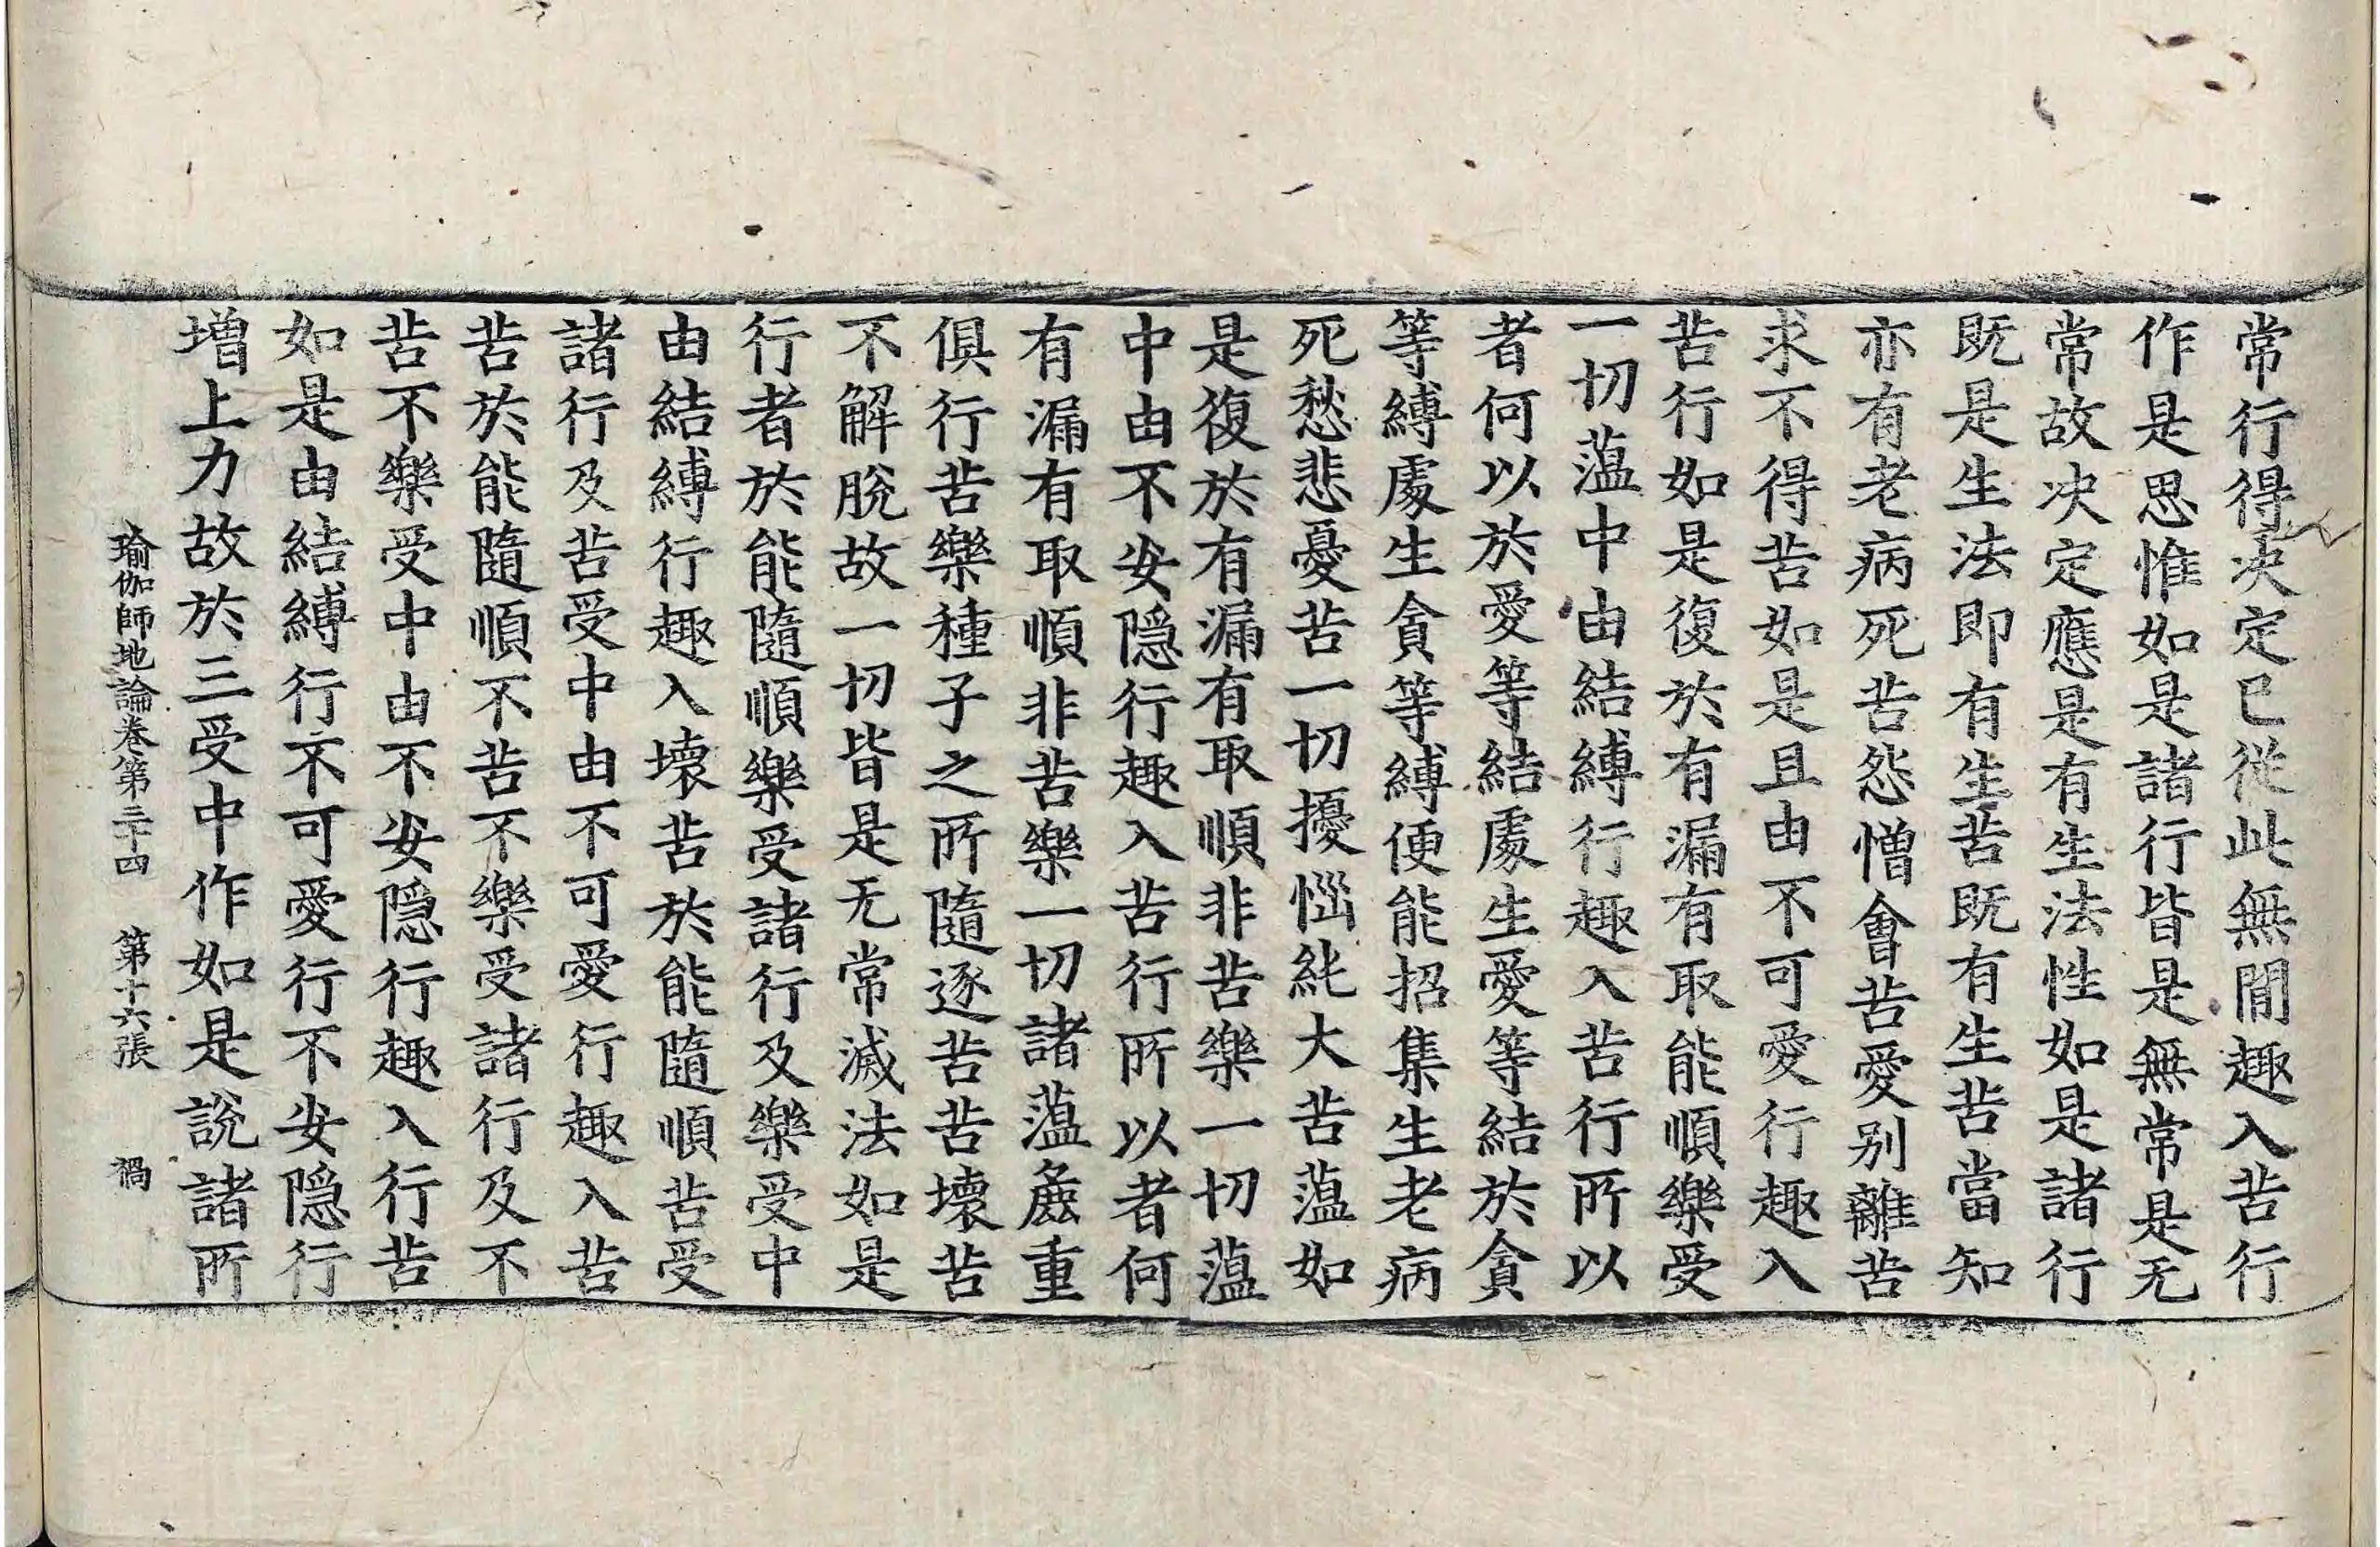 常行得决定已從此無間趣入苦行
作是思惟如是諸行皆是無常是无
常故决定應是有生法性如是諸行
既是生法即有生苦既有生苦當知
亦有老病死苦怨憎會苦愛别離苦
求不得苦如是且由不可愛行趣入
苦行如是復於有漏有取能順樂受
一切薀中由結縛行趣入苦行所以
者何以於愛等結處生愛等結於貪
等縛處生貪等縛便能招集生老病
死愁悲憂苦一切擾惱純大苦薀如
是復於有漏有取順非苦樂一切薀
中由不安隱行趣入苦行所以者何
有漏有取順非苦樂一切諸薀麁重
俱行苦樂種子之所隨逐苦苦壞苦
不解脫故一切皆是无常滅法如是
行者於能隨順樂受諸行及樂受中
由結縛行趣入壞苦於能隨順苦受
諸行及苦受中由不可愛行趣入苦
苦於能隨順不苦不樂受諸行及不
苦不樂受中由不安隱行趣入行苦
如是由結縛行不可愛行不安隱行
增上力故於三受中作如是說諸所
瑜伽師地論卷第三十四 第十六張 禍